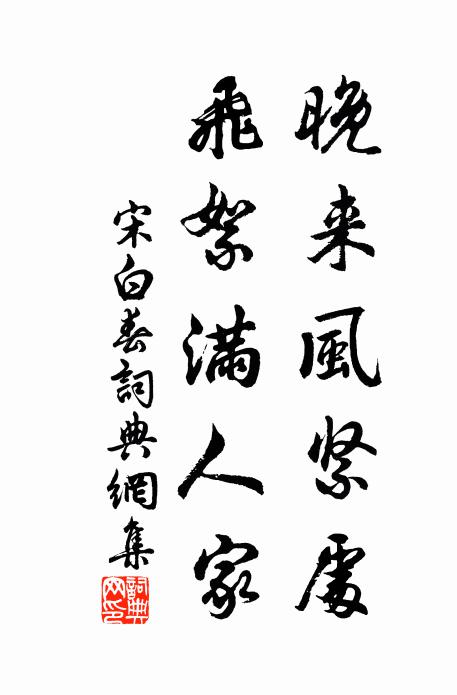 晚来風紧處
飛絮滿人家
宋白春詞典網集
詞典網印